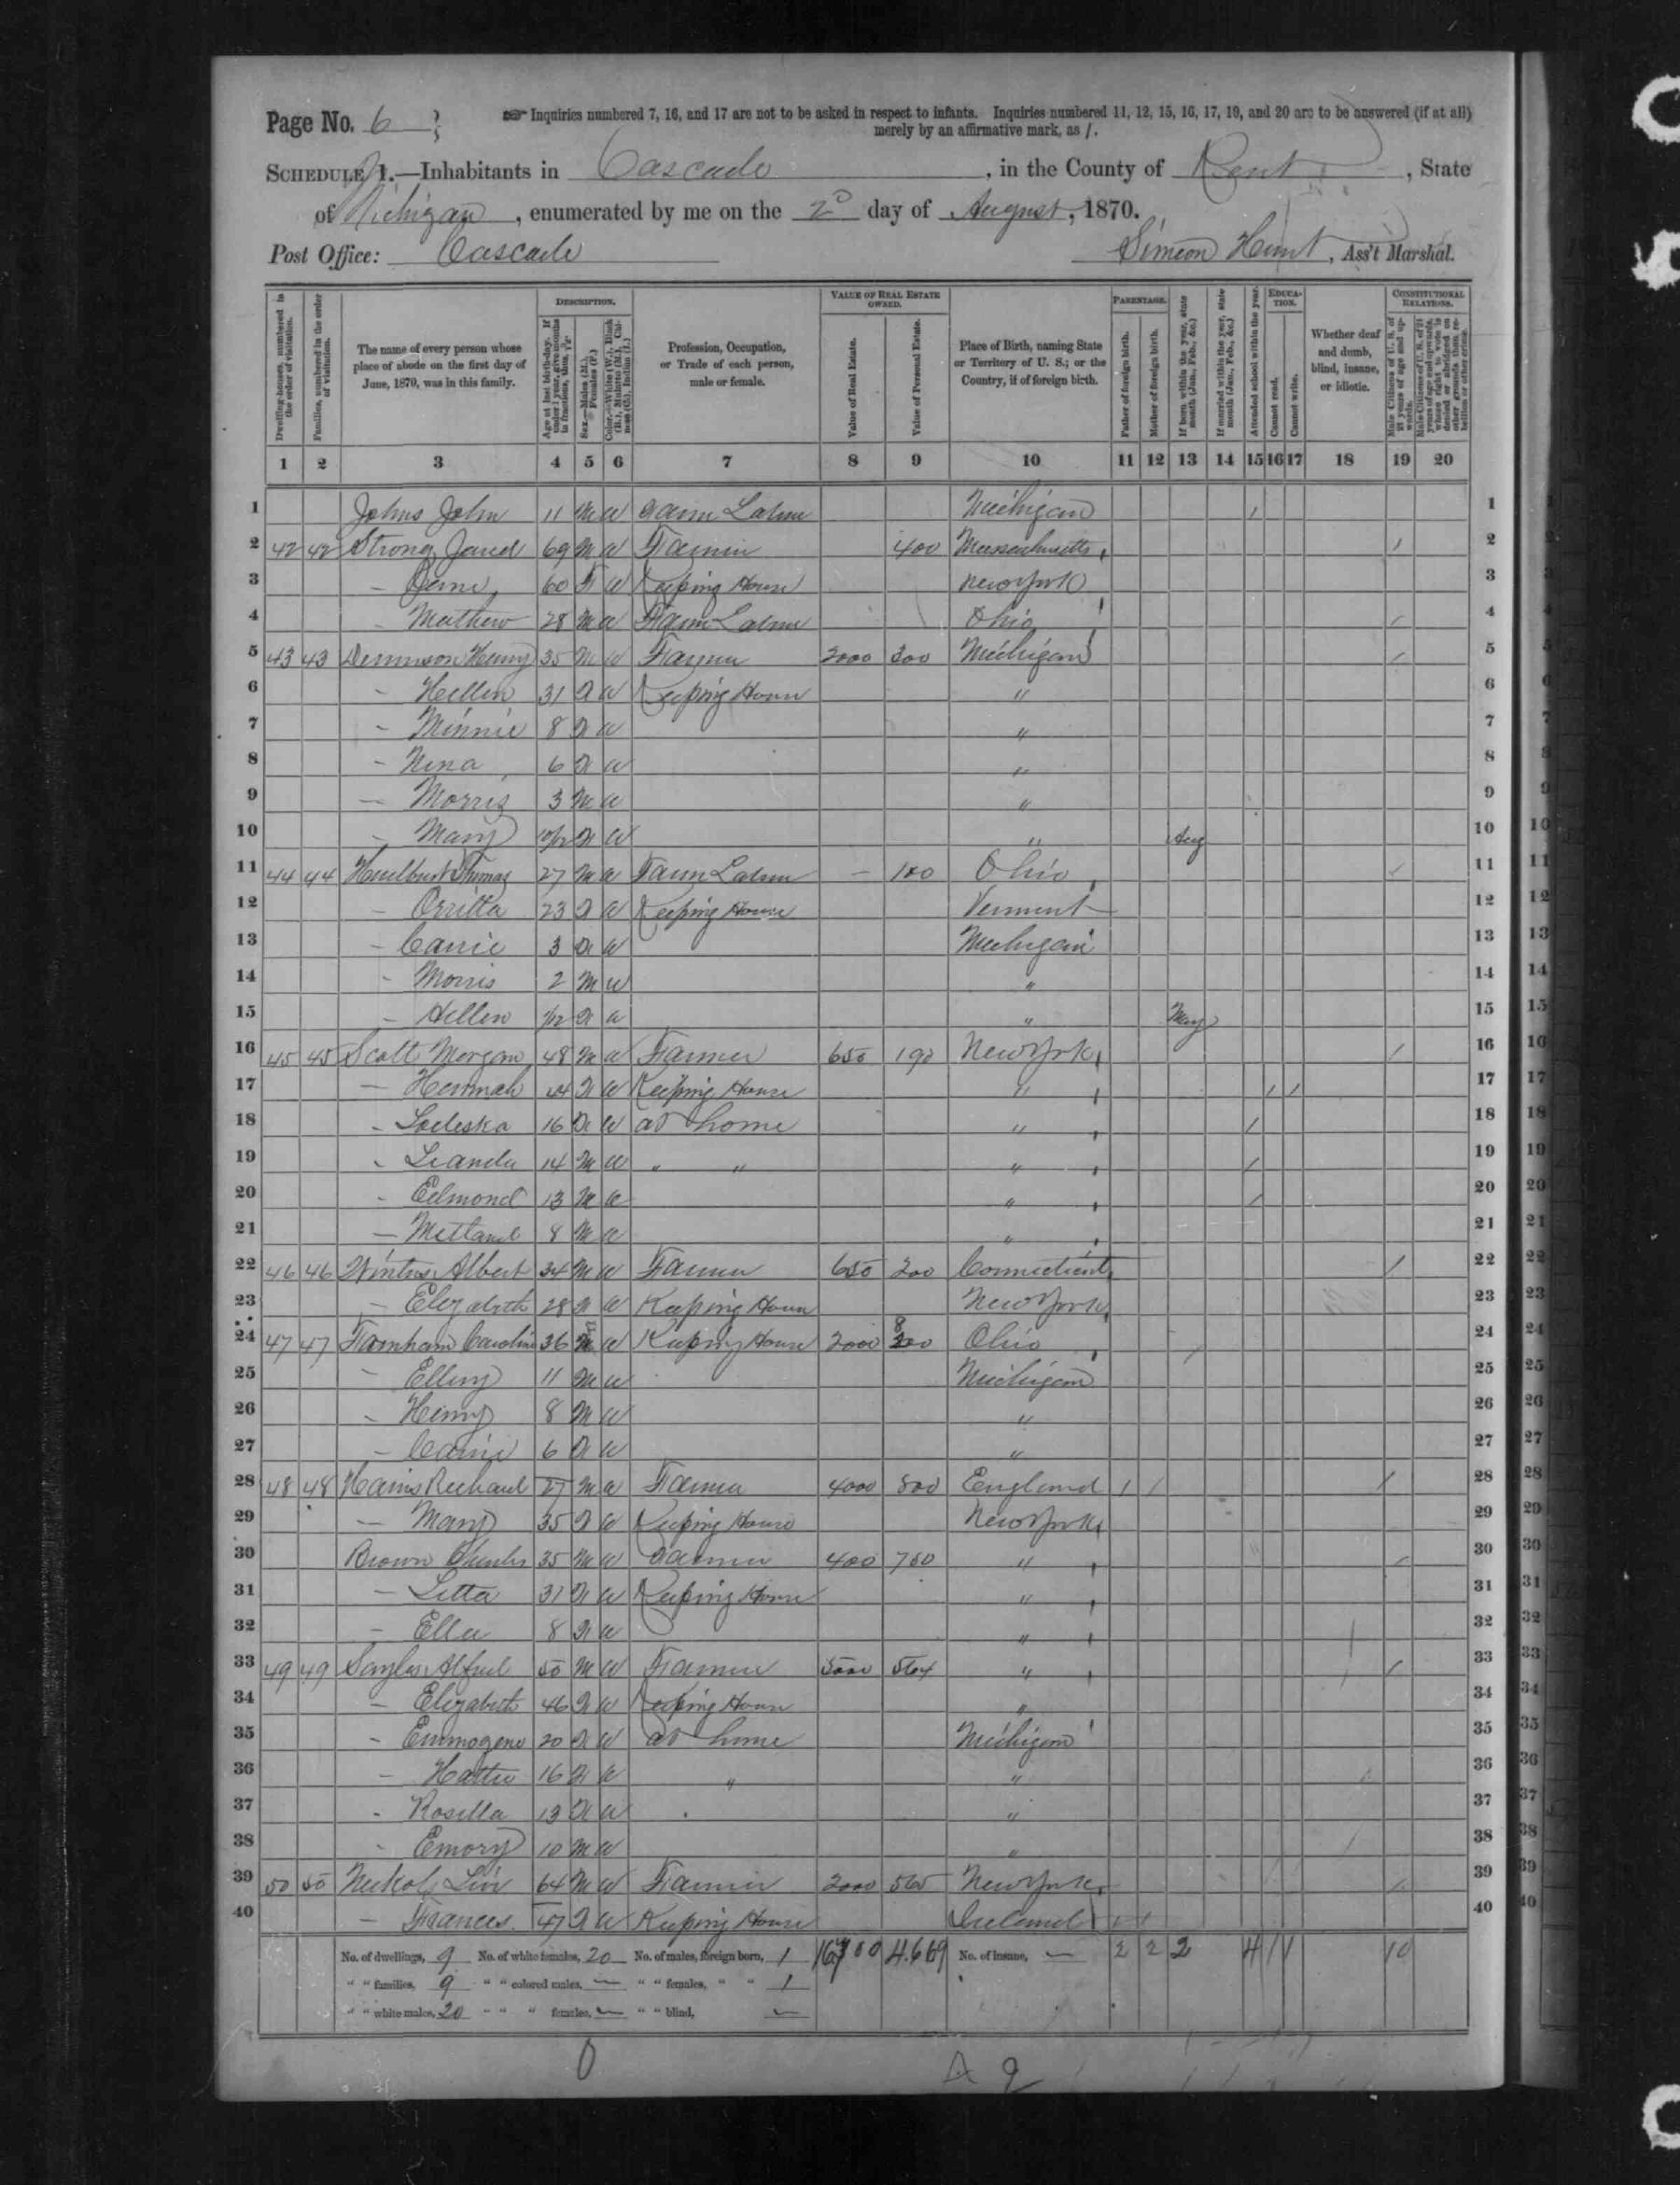 Page No. 6
Inquiries numbered 7, 16, and 17 are not to be asked in respect to infants. Inquiries numbered 11, 12, 15, 16, 17, 19, and 20 are to be answered (if at all)
merely by an affirmative mark, as /.
SCHEDULE 1.—Inhabitants in Cascade, in the County of Kent, State
of Michigan, enumerated by me on the 2d day of August, 1870.
Post Office: Cascade Simeon Hunt, Ass't Marshal.
DESCRIPTION. VALUE OF REAL ESTATE OWNED. PARENTAGE. EDUCATION. CONSTITUTIONAL RELATIONS.
Dwelling-houses, numbered in the order of visitation.
Families, numbered in the order of visitation.
The name of every person whose place of abode on the first day of June, 1870, was in this family.
Age at last birth-day. If under 1 year, give months in fractions, thus, 3/12.
Sex.—Males (M.), Females (F.)
Color.—White (W.), Black (B.), Mulatto (M.), Chinese (C.), Indian (I.)
Profession, Occupation, or Trade of each person, male or female.
Value of Real Estate.
Value of Personal Estate.
Place of Birth, naming State or Territory of U. S.; or the Country, if of foreign birth.
Father of foreign birth.
Mother of foreign birth.
If born within the year, state month (Jan., Feb., &c.)
If married within the year, state month (Jan., Feb., &c.)
Attended school within the year.
Cannot read.
Cannot write.
Whether deaf and dumb, blind, insane, or idiotic.
Male Citizens of U. S. of 21 years of age and upwards.
Male Citizens of U. S. of 21 years of age and upwards, whose right to vote is denied or abridged on other grounds than rebellion or other crime.
1 2 3 4 5 6 7 8 9 10 11 12 13 14 15 16 17 18 19 20
1 Johns John 11 M W Farm Labor Michigan / 1
2 42 42 Strong Jared 69 M W Farmer 400 Massachusetts / 2
3 — 60 F W Keeping House New York 3
4 — Mathew 28 M W Farm Labor Ohio / 4
5 43 43 Dennison Henry 35 M W Farmer 2000 300 Michigan / 5
6 — Hellen 31 F W Keeping House " 6
7 — Minnie 8 F W " 7
8 — Nina 6 F W " 8
9 — Morris 3 M W " 9
10 — Mary 10/12 F W " Aug 10
11 44 44 Hulburt Thomas 27 M W Farm Labor — 100 Ohio / 11
12 — Orrilla 23 F W Keeping House Vermont 12
13 — Carrie 3 F W Michigan 13
14 — Morris 2 M W " 14
15 — Hellen F W " May 15
16 45 45 Scott Morgan 48 M W Farmer 650 190 New York / 16
17 — Hannah 44 F W Keeping House " / / 17
18 — Lodeska 16 F W at home " / 18
19 — Leander 14 M W " " " / 19
20 — Edmond 13 M W " / 20
21 — 8 M W " 21
22 46 46 Winters Albert 34 M W Farmer 650 200 Connecticut / 22
23 — Elizabeth 28 F W Keeping House New York 23
24 47 47 Farnham Caroline 36 F W Keeping House 2000 800 Ohio 24
25 — Ellery 11 M W Michigan 25
26 — Henry 8 M W " 26
27 — Carrie 6 F W " 27
28 48 48 Harris Richard 27 M W Farmer 4000 800 England / / / 28
29 — Mary 35 F W Keeping House New York 29
30 Brown Charles 35 M W Farmer 400 750 " / 30
31 — Letta 31 F W Keeping House " 31
32 — Ella 8 F W " 32
33 49 49 Sayles Alfred 50 M W Farmer 5000 564 " / 33
34 — Elizabeth 46 F W Keeping House " 34
35 — Emmogene 20 F W at home Michigan 35
36 — Hattie 16 F W " " 36
37 — Rosella 13 F W " 37
38 — Emory 10 M W " 38
39 50 50 64 M W Farmer 2000 565 New York / 39
40 — Frances 47 F W Keeping House Ireland / / 40
No. of dwellings, 9 No. of white females, 20 No. of males, foreign born, 1 16700 4.669 No. of insane, — 2 2 2 4 1 1 10
" " families, 9 " " colored males, — " " females, " " 1
" " white males, 20 " " " females, — " " blind, —